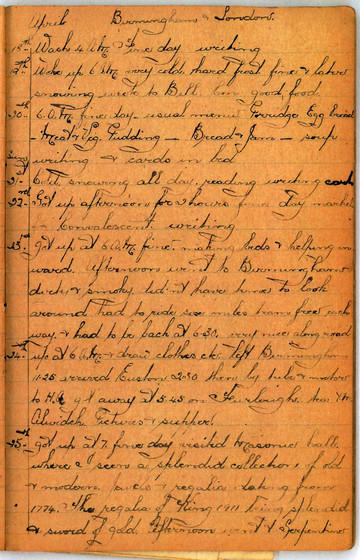 April Birmingham & London.
18th Wash 4 A.M. Fine day writing
19th Woke up 6 A.M. very cold, hard frost fine & later
snowing wrote to Bill. Em good food
20th 6 A.M. fine day - usual menu Porridge Egg bread
- Meat & Veg. Pudding - Bread & Jam - soup
writing & cards in bed
21st 6 A.M. snowing all day, reading writing cards
22nd Got up afternoon for 2 hours fine day
Convalescent writing
23rd got up at 6 A.M. fine. making beds & helping in
ward. Afternoon went to Birmingham
dirty & smoky. didn't have time to look
around had to ride six miles tram free each
way. & had to be back at 6-30. very nice along road
24th up at 6 A.M. & draw clothes etc. left Birmingham
11-25 arrived Euston 2-30 then by tube & motor
to H.Q. got away at 5.45 on Furlough. tea &
Aldwich Pictures & supper.
25th Got up at 7. fine day visited Masonic hall.
where I seen a splendid collection of old
& modern jewels & regalia dating from
1774. The regalia of King 1911 being splendid
& sword of gold. Afternoon went to Serpentine